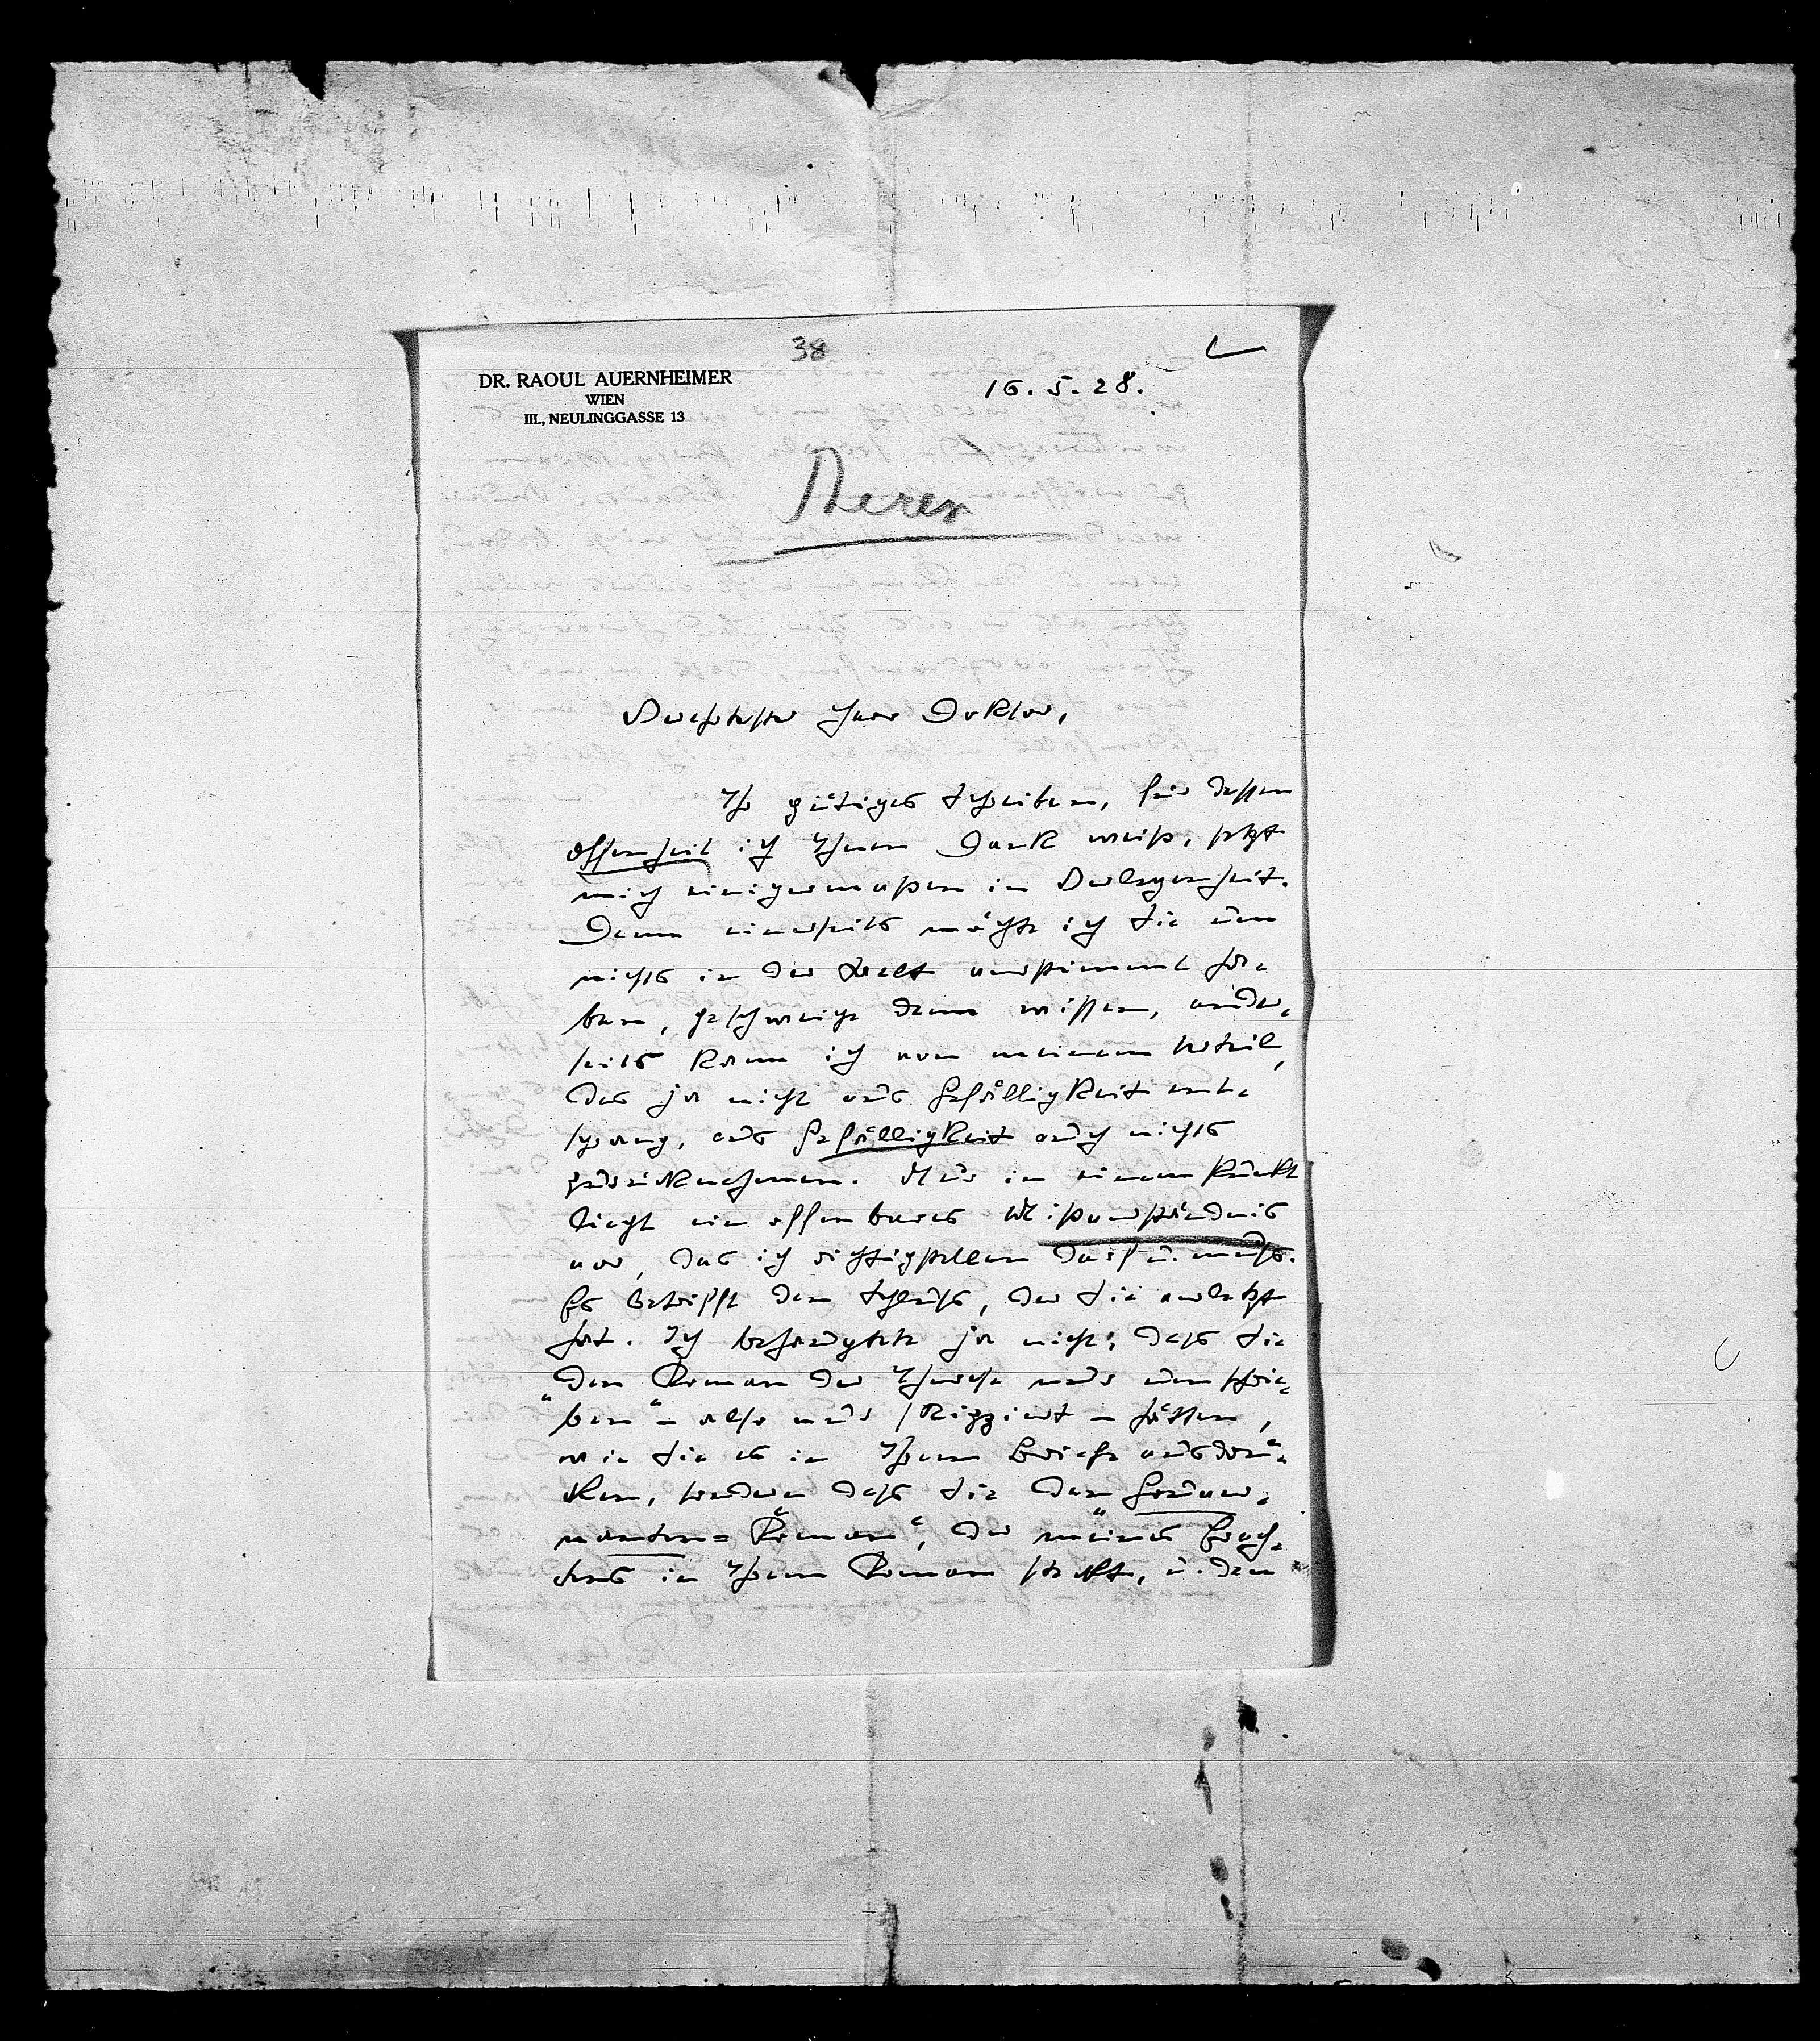 38
DR. RAOUL AUERNHEIMER
WIEN
III., NEULINGGASSE 13
16. 5. 28.
Verehrtester Herr Doktor,
Ihr gütiges Schreiben, für dessen
Offenheit ich Ihnen Dank weiß, setzt
mich einigermaßen in Verlegenheit.
Denn einerseits möchte ich Sie um
nichts in der Welt verstimmt ha-
ben, geschweige denn wissen, ander-
seits kann ich von meinem Urteil,
das ja nicht aus Gefälligkeit ent-
sprang, aus Gefälligkeit auch nichts
zurücknehmen. Nur in einem Punkt
liegt ein offenbares Mißverständnis
vor, das ich richtigstellen darf u. muß.
Es betrifft den Schluß, der Sie verletzt
hat. Ich behauptete ja nicht, daß Sie
den Roman der Therese nur „umschrie-
ben“ – also nur skizziert – hätten,
wie Sie es in Ihrem Briefe ausdrü-
cken, sondern daß Sie den „Gouver-
nanten-Roman“, der meines Erach-
tens in Ihrem Roman steckt, u. den